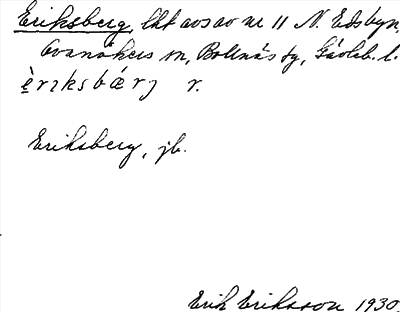 Eriksberg, lht avs av nr 11 N. Edsbyn,
Ovanåkers sn, Bollnäs tg, Gävleb. l.
èrɪksbærj r.
Eriksberg, jb.
Erik Eriksson 1930.